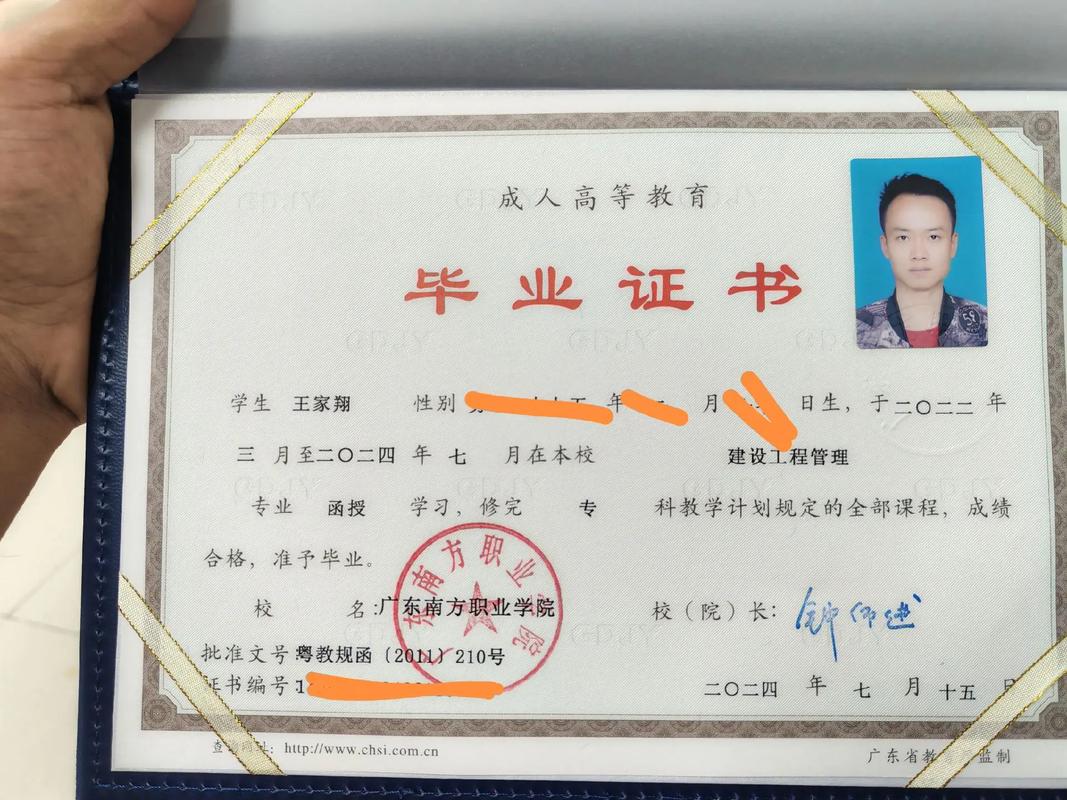 成人高等教育
毕业证书
学生 王家翔 性别 年 月 日生，于二〇二二 年
三 月至二〇二四 年 七 月在本校 建设工程管理
专业 函授 学习，修完 专 科教学计划规定的全部课程，成绩
合格，准予毕业。
校 名：广东南方职业学院 校（院）长：
广东南方职业学院
批准文号：粤教规函〔2011〕210号
证书编号：1
二〇二四 年 七 月 十五
查询网址：http://www.chsi.com.cn
广东省教 监制